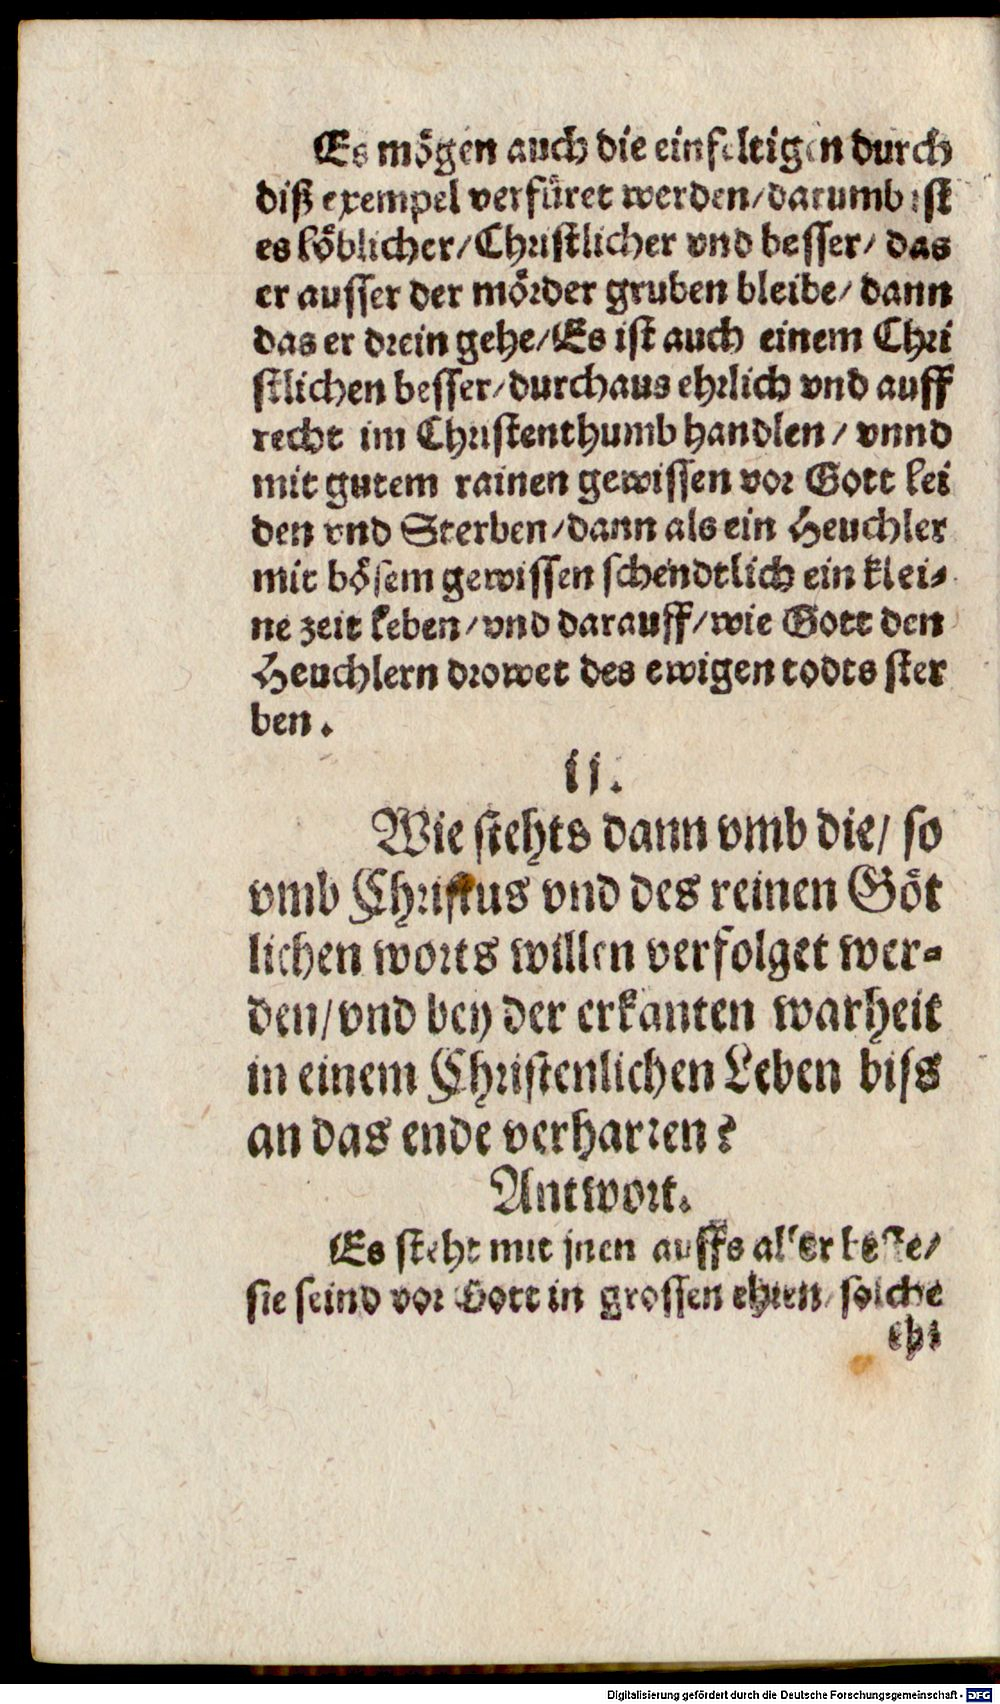 Es mögen auch die einfeltigen durch
diß exempel verfüret werden/darumb ist
es löblicher/Christlicher vnd besser/ das
er ausser der mörder gruben bleibe/ dann
das er drein gehe/Es ist auch einem Chri
stlichen besser/durchaus ehrlich vnd auff
recht im Christenthumb handlen/ vnnd
mit gutem rainen gewissen vor Gott lei
den vnd Sterben/dann als ein Heuchler
mit bösem gewissen schendtlich ein klei-
ne zeit leben/vnd darauff/wie Gott den
Heuchlern drowet des ewigen todts ster
ben.
ii.
Wie stehts dann vmb die/ so
vmb Christus vnd des reinen Göt
lichen worts willen verfolget wer-
den/vnd bey der erkanten warheit
in einem Christenlichen Leben biss
an das ende verharren?
Antwort.
Es steht mit jnen auffs aller beste/
sie seind vor Gott in grossen ehren/ solche
Digitalisierung gefördert durch die Deutsche Forschungsgemeinschaft - DFG